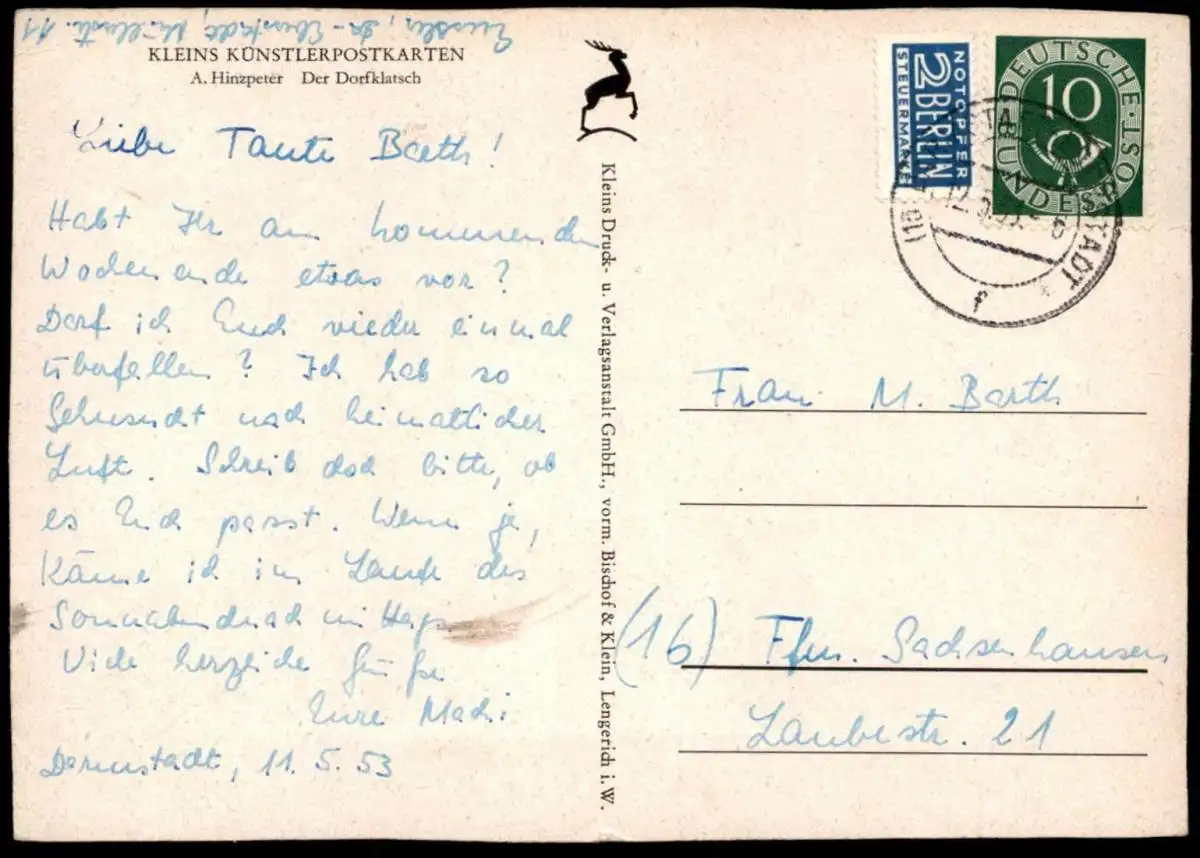 Da-Eberstadt, 11
KLEINS KÜNSTLERPOSTKARTEN
A. Hinzpeter Der Dorfklatsch
Liebe Tante Barth!
Habt Ihr am kommenden
Wochenende etwas vor?
Darf ich Euch wieder einmal
überfallen? Ich hab so
Sehnsucht nach heimatlicher
Luft. Schreib doch bitte, ob
es Euch passt. Wenn ja,
käme ich im Laufe des
Sonnabendnachmittags.
Viele herzliche Grüße
Eure Madi
Darmstadt, 11.5.53
Kleins Druck- u. Verlagsanstalt GmbH., vorm. Bischof & Klein, Lengerich i. W.
NOTOPFER
2 BERLIN
STEUERMARKE
DEUTSCHE
BUNDESPOST
10
(16)
DARMSTADT
f
Frau M. Barth
(16) Ffm. Sachsenhausen
Laubestr. 21